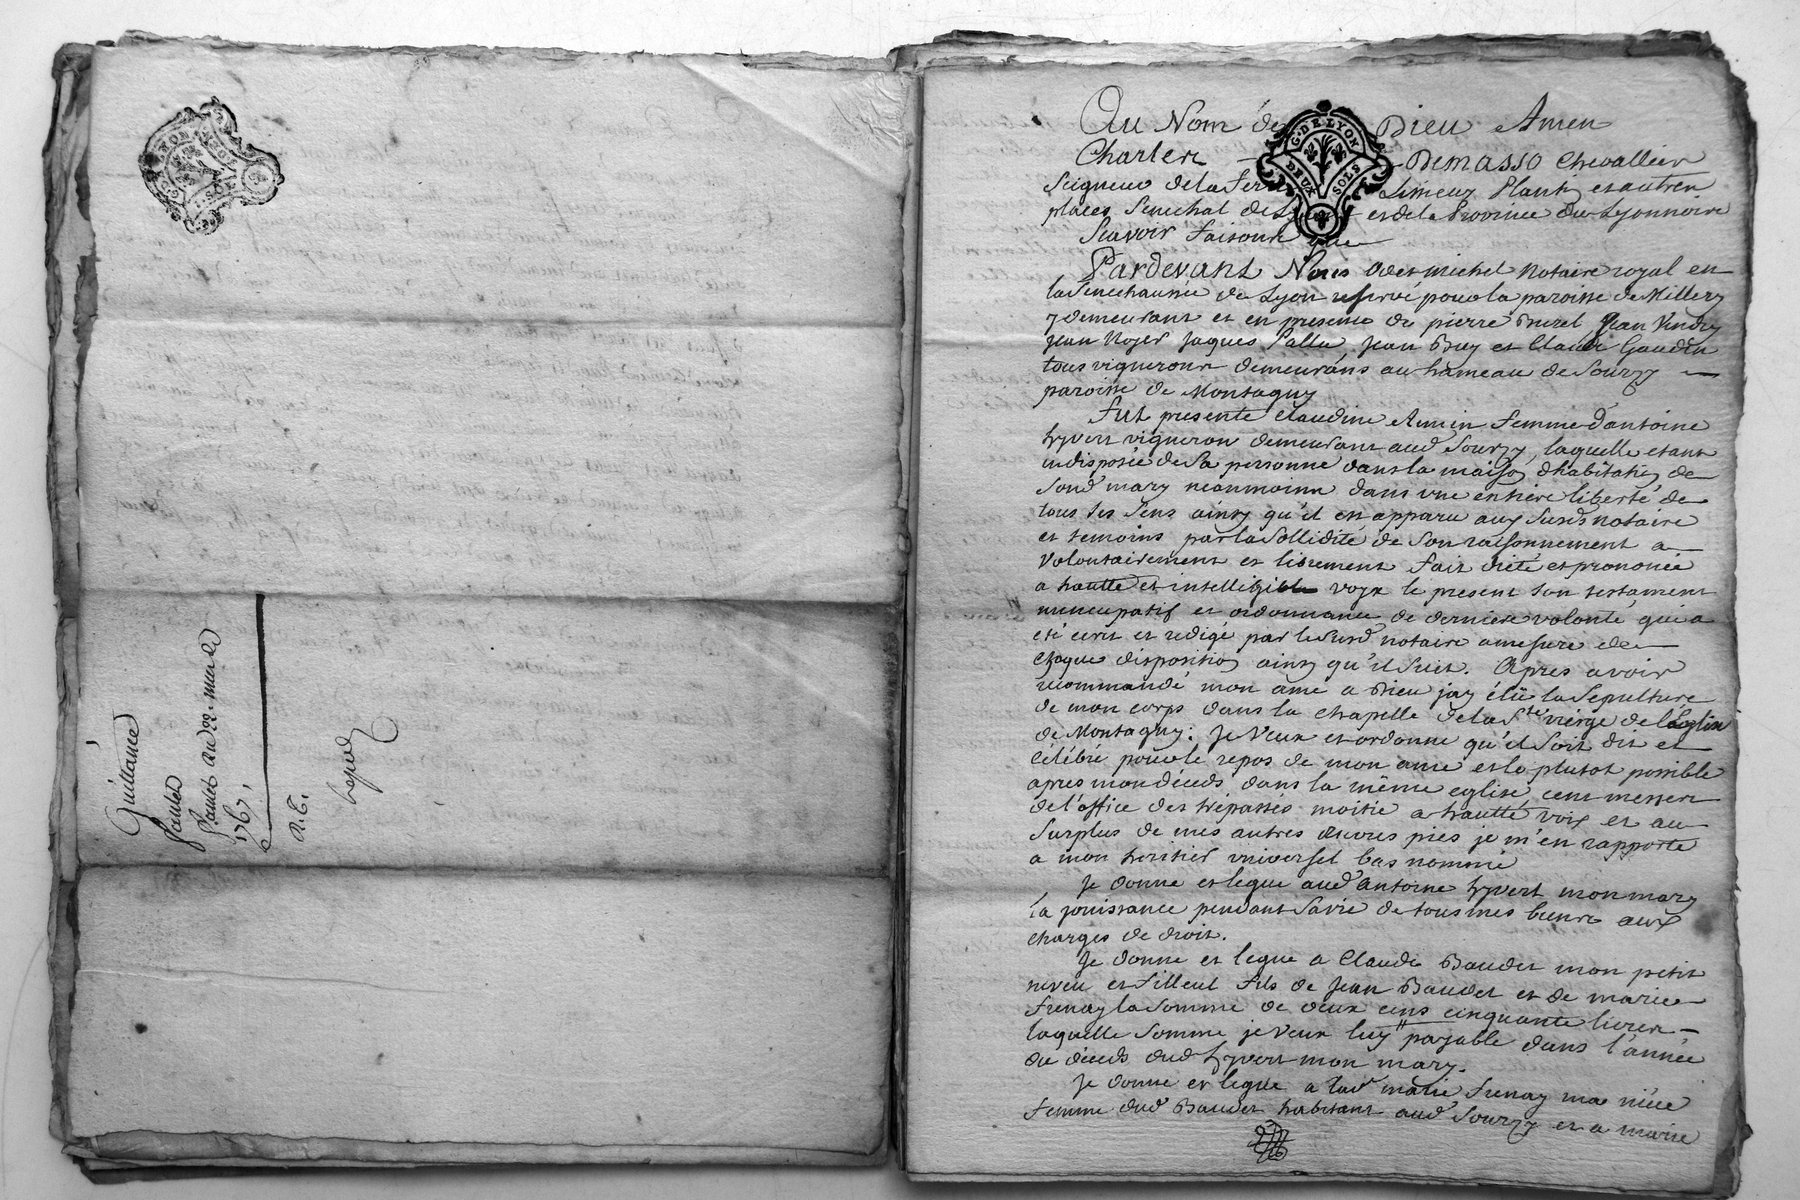 Quittance
22. mars
1767.
Au Nom de Dieu Amen
G. DE LYON
DEUX SOLS
Charles Demasso Chevallier
Seigneur de la Ferr Limeux Planti et autres
places Senechal de Lyon et de la Province du Lyonnoire
Scavoir faisons que
Pardevant Nous Odet michel notaire royal en
la Senechaussée de Lyon reservé pour la paroisse de Millery
y demeurant et en presence de pierre Burel, Jean Vindry
Jean Noyer Jaques Jean Buy et Claude Gaudin
tous vignerons demeurans au hameau de Sourzy
paroisse de Montagny
Fut presente claudine femme D'antoine
hyvert vigneron demeurant aud Sourzy, laquelle etant
indisposée de Sa personne dans la maison d'habitation de
Sond mary neanmoins dans une entiére liberté de
tous ses Sens ainsy qu'il est apparu aux Susds notaire
et temoins par la Sollidité de Son raisonnement a
volontairement et librement fait dicté et prononcé
a hautte et intelligible voyx le present Son testament
nuncupatif et ordonnance de derniére volonté, qui a
eté ecrit et redigé par le Susd notaire a mesure de
chaque disposition ainsy qu'il suit. Apres avoir
recommandé mon ame a Dieu jay élû la Sepulture
de mon corps dans la chapelle de la Ste vierge de l'eglise
de Montagny: Je Veux et ordonne qu'il Soit dit et
célébré pour le repos de mon ame et le plutot possible
apres mon décéds dans la même eglise, cent messes
de l'office des trépassés moitié a hautte voix et au
Surplus de mes autres œuvres pies je m'en rapporte
a mon heritier universel bas nommé
Je donne et legue aud antoine hyvert mon mary
la jouissance pendant Sa vie de tous mes biens aux
charges de droit.
Je donne et legue a Claude Baudet mon petit
neveu et filleul fils de Jean Baudet et de marie
frenay la Somme de deux cens cinquante livres
laquelle Somme je veux luy payable dans l'année
du décéds dud hyvert mon mary.
Je donne et legue a lad marie frenay ma niéce
femme dud Baudet habitant aud Sourzy et a marie